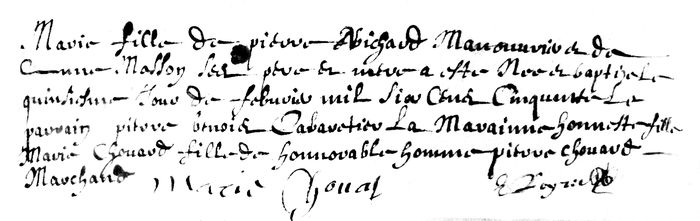 Marie fille de pierre Richard Manouvrier et de
Anne Masson ses pere et mere a esté Nee et baptizée Le
quinsiesme Jour de febvrier mil six Cens Cinquante Le
parrain pierre benoist Cabaretier La Marainne honneste fille
Marie Chouard fille de honnorable homme pierre Chouard
Marchand Marie Chouat